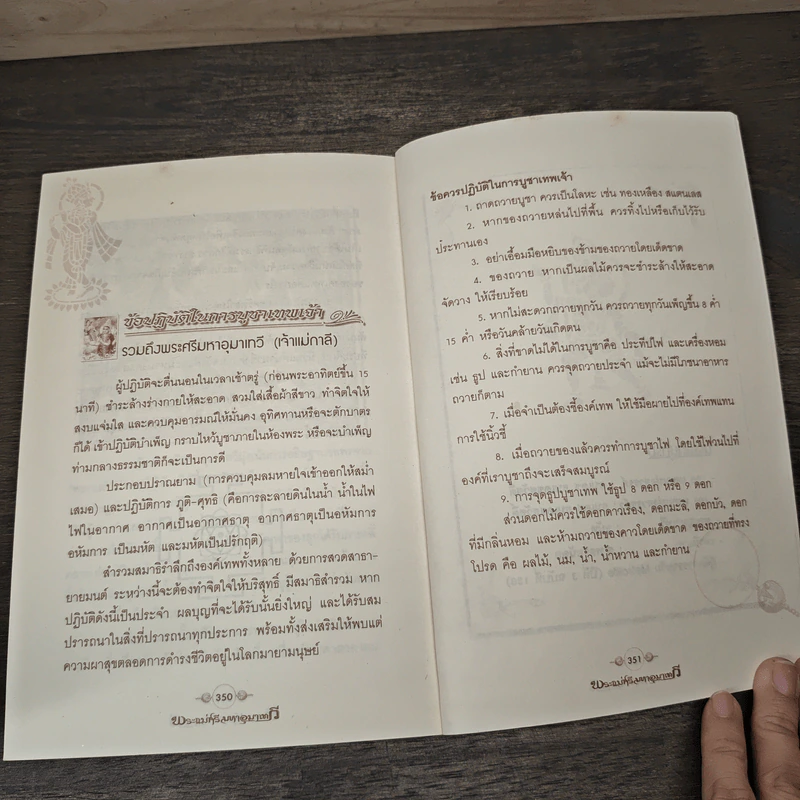 ข้อปฏิบัติในการบูชาเทพเจ้า
รวมถึงพระศรีมหาอุมาเทวี (เจ้าแม่กาลี)
ผู้ปฏิบัติจะตื่นนอนในเวลาเช้าตรู่ (ก่อนพระอาทิตย์ขึ้น 15
นาที) ชำระล้างร่างกายให้สะอาด สวมใส่เสื้อผ้าสีขาว ทำจิตใจให้
สงบแจ่มใส และควบคุมอารมณ์ให้มั่นคง อุทิศทานหรือจะตักบาตร
ก็ได้ เข้าปฏิบัติบำเพ็ญ กราบไหว้บูชาภายในห้องพระ หรือจะบำเพ็ญ
ท่ามกลางธรรมชาติก็จะเป็นการดี
ประกอบปราณยาม (การควบคุมลมหายใจเข้าออกให้สม่ำ
เสมอ) และปฏิบัติการ ภูติ-ศุทธิ (คือการละลายดินในน้ำ น้ำในไฟ
ไฟในอากาศ อากาศเป็นอากาศธาตุ อากาศธาตุเป็นอหังการ
อหังการ เป็นมหัต และมหัตเป็นปรักฤติ)
สำรวมสมาธิรำลึกถึงองค์เทพทั้งหลาย ด้วยการสวดสาธา-
ยายมนต์ ระหว่างนี้จะต้องทำจิตใจให้บริสุทธิ์ มีสมาธิสำรวม หาก
ปฏิบัติดังนี้เป็นประจำ ผลบุญที่จะได้รับนั้นยิ่งใหญ่ และได้รับสม
ปรารถนาในสิ่งที่ปรารถนาทุกประการ พร้อมทั้งส่งเสริมให้พบแต่
ความผาสุขตลอดการดำรงชีวิตอยู่ในโลกมายามนุษย์
350
พระแม่ศรีมหาอุมาเทวี
ข้อควรปฏิบัติในการบูชาเทพเจ้า
1. ถาดถวายบูชา ควรเป็นโลหะ เช่น ทองเหลือง สแตนเลส
2. หากของถวายหล่นไปที่พื้น ควรทิ้งไปหรือเก็บไว้รับ
ประทานเอง
3. อย่าเอื้อมมือหยิบของข้ามของถวายโดยเด็ดขาด
4. ของถวาย หากเป็นผลไม้ควรจะชำระล้างให้สะอาด
จัดวาง ให้เรียบร้อย
5. หากไม่สะดวกถวายทุกวัน ควรถวายทุกวันเพ็ญขึ้น 8 ค่ำ
15 ค่ำ หรือวันคล้ายวันเกิดตน
6. สิ่งที่ขาดไม่ได้ในการบูชาคือ ประทีปไฟ และเครื่องหอม
เช่น ธูป และกำยาน ควรจุดถวายประจำ แม้จะไม่มีโภชนาอาหาร
ถวายก็ตาม
7. เมื่อจำเป็นต้องชี้องค์เทพ ให้ใช้มือผายไปที่องค์เทพแทน
การใช้นิ้วชี้
8. เมื่อถวายของแล้วควรทำการบูชาไฟ โดยใช้ไฟวนไปที่
องค์ที่เราบูชาถึงจะเสร็จสมบูรณ์
9. การจุดธูปบูชาเทพ ใช้ธูป 8 ดอก หรือ 9 ดอก
ส่วนดอกไม้ควรใช้ดอกดาวเรือง, ดอกมะลิ, ดอกบัว, ดอก
ที่มีกลิ่นหอม และห้ามถวายของคาวโดยเด็ดขาด ของถวายที่ทรง
โปรด คือ ผลไม้, นม, น้ำ, น้ำหวาน และกำยาน
351
พระแม่ศรีมหาอุมาเทวี